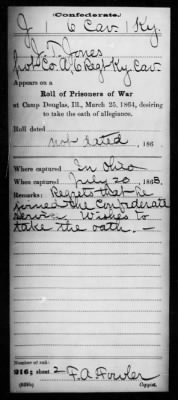 (Confederate.)
J 6 Cav. Ky.
J. T. Jones
Co. A, 6 Reg't Ky Cav.
Appears on a
Roll of Prisoners of War
at Camp Douglas, Ill., March 25, 1864, desiring
to take the oath of allegiance.
Roll dated
not dated, 186 .
Where captured In Ohio
When captured July 20 1863.
Remarks: Regrets that he
joined the Confederate
service. Wishes to
take the oath. —
Number of roll:
216; sheet 2 F. A. Fowler
Copyist.